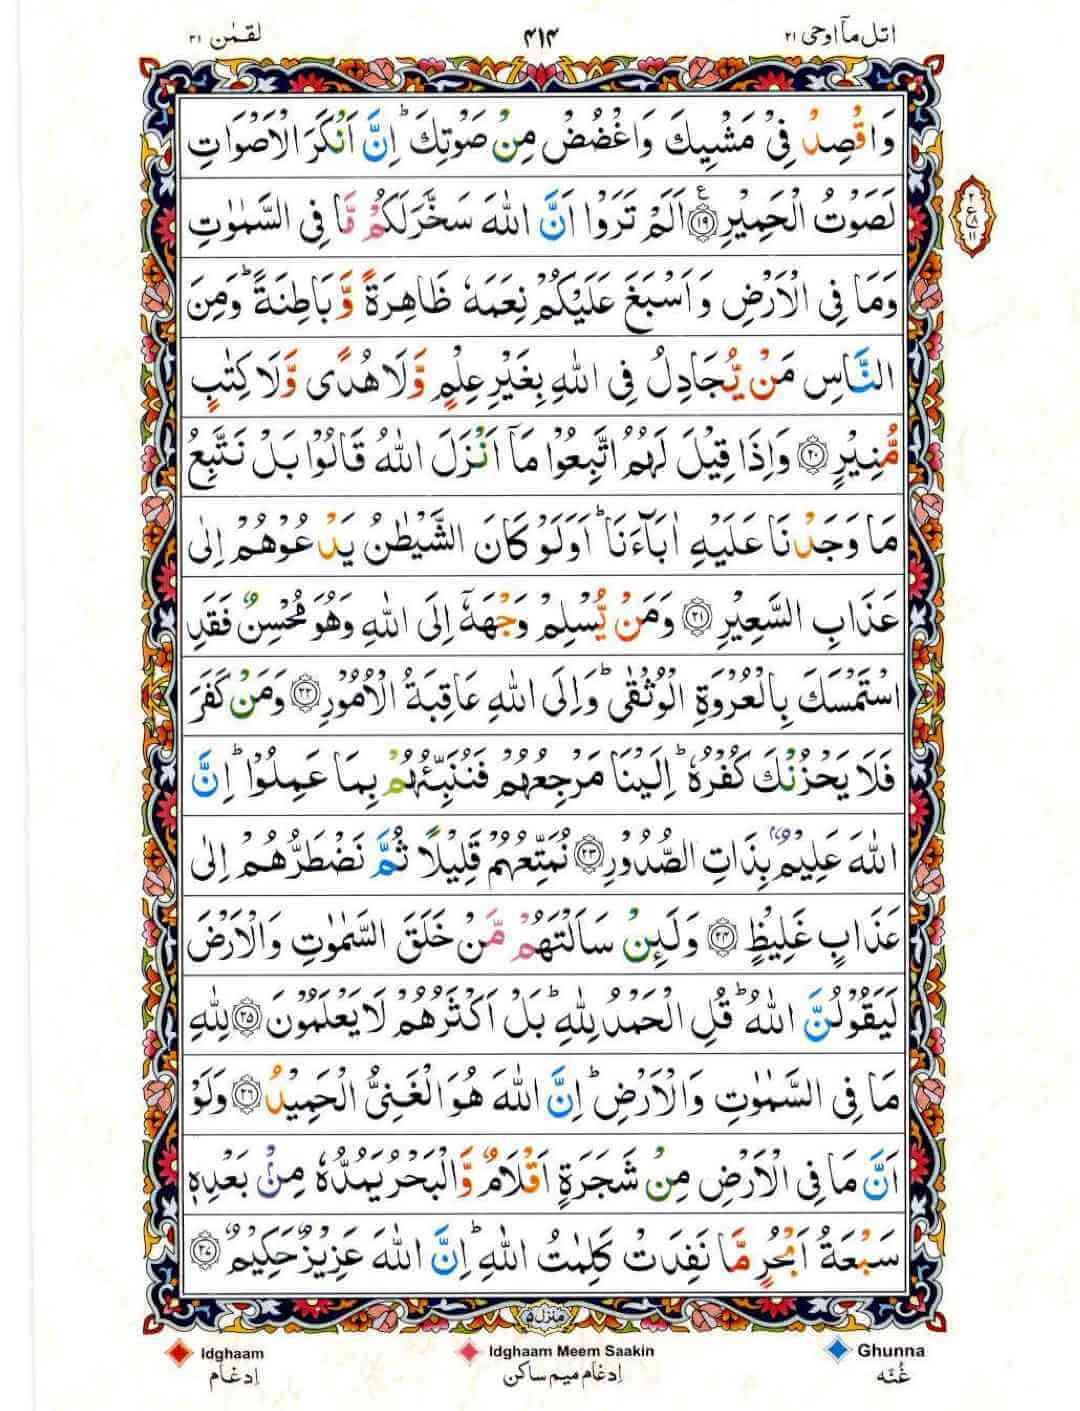 اتل مآ اوحی ۲۱
۴۱۴
لقمٰن ۳۱
وَاقْصِدْ فِیْ مَشْیِكَ وَاغْضُضْ مِنْ صَوْتِكَ ؕ اِنَّ اَنْكَرَ الْاَصْوَاتِ
لَصَوْتُ الْحَمِیْرِ ۝۱۹ ع اَلَمْ تَرَوْا اَنَّ اللّٰهَ سَخَّرَ لَكُمْ مَّا فِی السَّمٰوٰتِ
۲
ع
۸
۱۱
وَمَا فِی الْاَرْضِ وَاَسْبَغَ عَلَیْكُمْ نِعَمَهٗ ظَاهِرَةً وَّبَاطِنَةً ؕ وَمِنَ
النَّاسِ مَنْ یُّجَادِلُ فِی اللّٰهِ بِغَیْرِ عِلْمٍ وَّلَا هُدًی وَّلَا كِتٰبٍ
مُّنِیْرٍ ۝۲۰ وَاِذَا قِیْلَ لَهُمُ اتَّبِعُوْا مَاۤ اَنْزَلَ اللّٰهُ قَالُوْا بَلْ نَتَّبِعُ
مَا وَجَدْنَا عَلَیْهِ اٰبَآءَنَا ؕ اَوَلَوْ كَانَ الشَّیْطٰنُ یَدْعُوْهُمْ اِلٰی
عَذَابِ السَّعِیْرِ ۝۲۱ وَمَنْ یُّسْلِمْ وَجْهَهٗۤ اِلَی اللّٰهِ وَهُوَ مُحْسِنٌ فَقَدِ
اسْتَمْسَكَ بِالْعُرْوَةِ الْوُثْقٰی ؕ وَاِلَی اللّٰهِ عَاقِبَةُ الْاُمُوْرِ ۝۲۲ وَمَنْ كَفَرَ
فَلَا یَحْزُنْكَ كُفْرُهٗ ؕ اِلَیْنَا مَرْجِعُهُمْ فَنُنَبِّئُهُمْ بِمَا عَمِلُوْا ؕ اِنَّ
اللّٰهَ عَلِیْمٌۢ بِذَاتِ الصُّدُوْرِ ۝۲۳ نُمَتِّعُهُمْ قَلِیْلًا ثُمَّ نَضْطَرُّهُمْ اِلٰی
عَذَابٍ غَلِیْظٍ ۝۲۴ وَلَئِنْ سَاَلْتَهُمْ مَّنْ خَلَقَ السَّمٰوٰتِ وَالْاَرْضَ
لَیَقُوْلُنَّ اللّٰهُ ؕ قُلِ الْحَمْدُ لِلّٰهِ ؕ بَلْ اَكْثَرُهُمْ لَا یَعْلَمُوْنَ ۝۲۵ لِلّٰهِ
مَا فِی السَّمٰوٰتِ وَالْاَرْضِ ؕ اِنَّ اللّٰهَ هُوَ الْغَنِیُّ الْحَمِیْدُ ۝۲۶ وَلَوْ
اَنَّ مَا فِی الْاَرْضِ مِنْ شَجَرَةٍ اَقْلَامٌ وَّالْبَحْرُ یَمُدُّهٗ مِنْۢ بَعْدِهٖ
سَبْعَةُ اَبْحُرٍ مَّا نَفِدَتْ كَلِمٰتُ اللّٰهِ ؕ اِنَّ اللّٰهَ عَزِیْزٌ حَكِیْمٌ ۝۲۷
مازل ۵
Ghunna
غُنَّه
Idghaam Meem Saakin
اِدغام میم ساکن
Idghaam
اِدغام